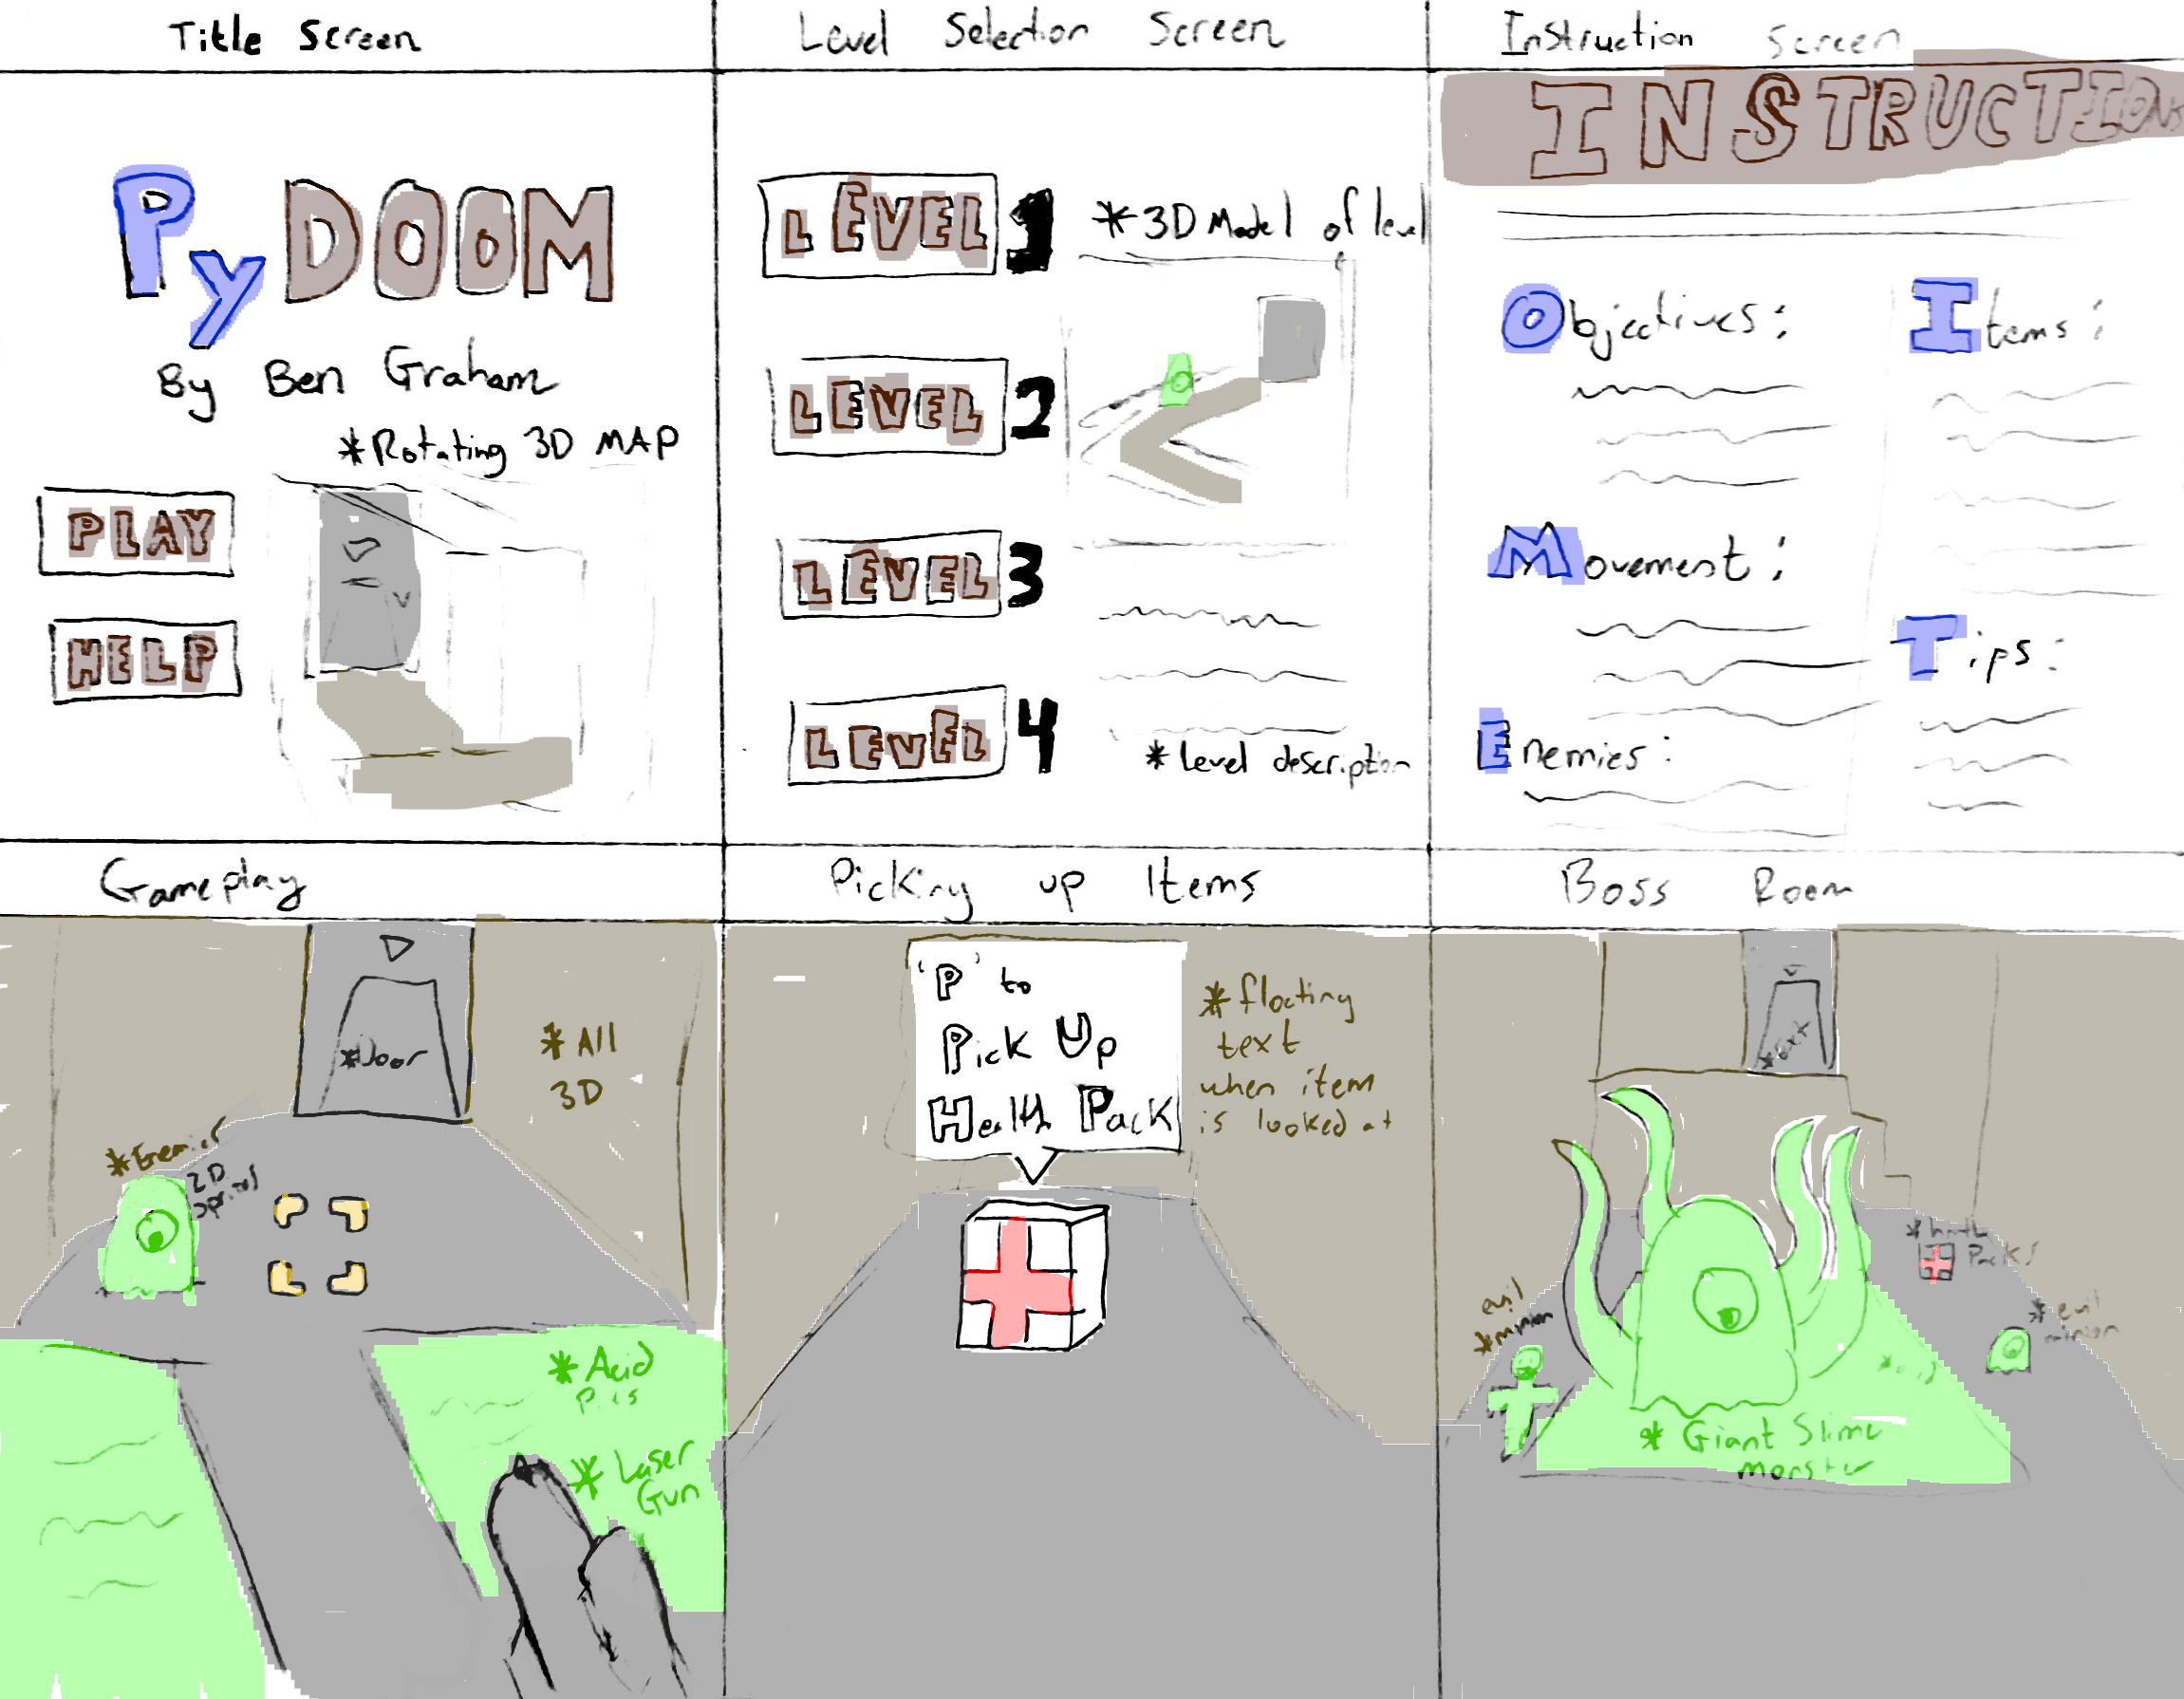 Title Screen
PyDOOM
By Ben Graham
*Rotating 3D MAP
PLAY
HELP
Level Selection Screen
LEVEL 1
*3D Model of level
LEVEL 2
LEVEL 3
LEVEL 4
*Level description
Instruction Screen
INSTRUCTION
Objectives:
Items:
Movement:
Tips:
Enemies:
Gameplay
*Door
*All
3D
2D
*Acid
Pits
*Laser
Gun
Picking up Items
'P' to
Pick Up
Health Pack
*floating
text
when item
is looked at
Boss Room
*health
Packs
evil
*minion
*evil
minion
*acid
*Giant Slime
monster